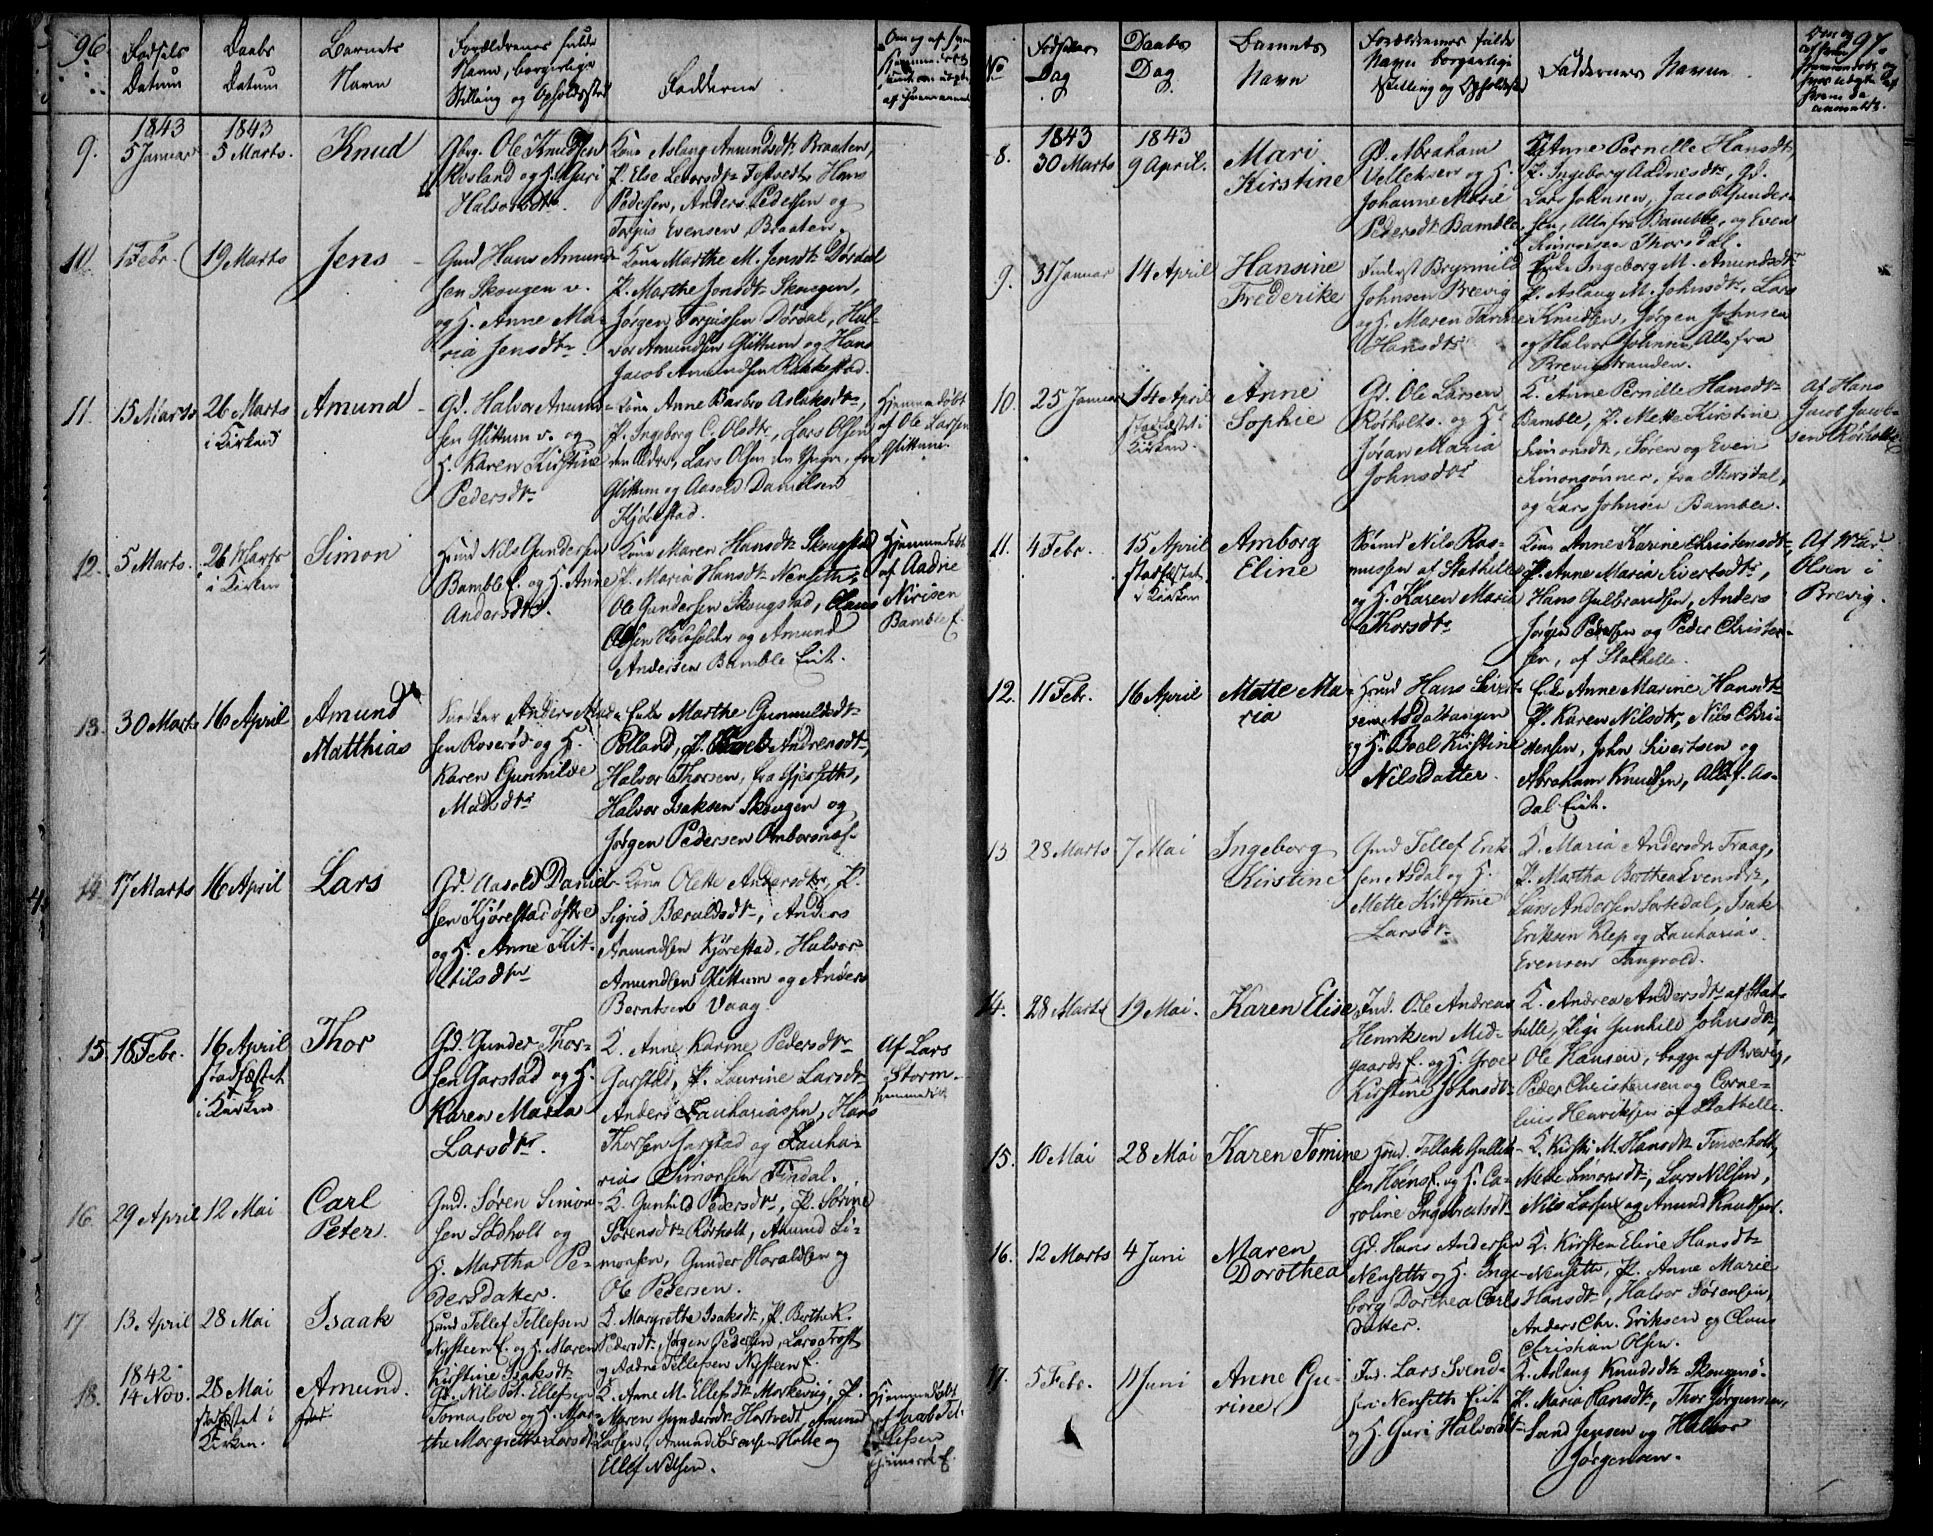 96.
Fødsels
Datum
Daabs
Datum
Barnets
Navn
Forældrenes fulde
Navn, borgerlige
Stilling og Opholdssted
Fadderne
1843
1843
9.
5 Januar
5 Marts.
Knud
Gbrg. Ole Knudsen
Rosland og H. Guri
Halvorsdtr.
Kone Aslaug Amundsdtr Braaten,
P. Else Levorsdtr Tostvedt, Hans
Pedersen, Anders Pedersen og
Torjus Evensen Braaten.
10
1 Febr.
19 Marts
Jens
Gmd Hans Amund-
sen Skougen v.
og H. Anne Ma-
ria Jensdtr.
Kone Marthe M. Jensdtr Dørdal
P. Marthe Jonsdtr Skougen,
Jørgen Torjussen Dørdal, Hal-
vor Amundsen Glittum og Hans
Jacob Amundsen Rakkestad.
11.
15 Marts
26 Marts
i Kirken
Amund
Gd. Halvor Amund-
sen Glittum v. og
H. Karen Kirstine
Pedersdtr
Kone Anne Barbro Aslaksdtr,
P. Ingeborg C. Olsdtr, Lars Olsen
den Ældre, Lars Olsen den Yngre, fra
Glittum og Aasold Danielsen
Kjørestad.
Hjemmedøbt
af Ole Larsen
Glittum.
12.
5 Marts.
26 Marts
i Kirken
Simon
Huusmd Nils Gundersen
Bamble E. og H. Anne
Andersdtr.
Kone Maren Hansdtr Skougstad
P. Maria Hansdtr Nenseth,
Ole Gundersen Skougstad, Claus
Olsen og Amund
Andersen Bamble Eie.
Hjemmedøbt
af Aadne
Bamble E.
13.
30 Marts
16 April
Amund
Matthias
Anders Mad-
sen Roserød og H.
Karen Gunhilde
Madsdtr
Enke Marthe Gunnuldsdtr
Andersdtr,
Halvor Thorsen, fra
Halvor Isaksen Skougen og
Jørgen Pedersen Omborsnæs.
14.
17 Marts
16 April
Lars
Gd. Aasold Daniel-
sen Kjørestad østre
og H. Anne Kit-
tilsdtr
Kone Olette Andersdtr, P.
Sigrid Bæruldsdtr, Anders
Amundsen Kjørestad, Halvor
Amundsen Glittum og Anders
Berntsen Vaag.
15.
18 Febr.
16 April
stadfæstet
i Kirken
Thor
Gd. Gunder Thor-
sen Garstad og H.
Karen Maria
Larsdtr.
K. Anne Karine Pedersdtr
Garstad, P. Laurine Larsdtr
Anders Zachariassen, Hans
Thorsen Garstad og Zacha-
rias Simonsen Findal.
Af Lars
Storm
16
29 April
12 Mai
Carl
Peter.
Gmd. Søren Simon-
sen Sødholt og
H. Martha Pe-
dersdatter.
K. Gunhild Pedersdtr, P. Sørine
Sørensdtr Rørholt, Amund Si-
monsen, Gunder Haraldsen og
Ole Pedersen.
17.
13 April
28 Mai
Isaak
Huusmd Tellef Tellefsen
Nysteen E. og H. Maren
Kirstine Isaksdtr
K. Margrethe Isaksdtr, P. Berthe K.
Pedersdtr, Jørgen Pedersen, Lars Trost
og Aadne Tellefsen Nysteen E.
1842
18.
14 Nov.
28 Mai
stadfæstet i
Kirken.
Amund.
Gd. Nils Pet. Ellefsen
Tomasboe og H. Mar-
the Margrethe Larsdtr
K. Anne M. Ellefsdtr Morkevig, P.
Maren Gundersdtr Hartvedt, Amund
Larsen, Amund Halle og
Ellef Nilsen.
Hjemmedøbt
af Jacob Tel-
lefsen
97.
No
Fødsels
Dag
Daabs
Dag.
Barnets
Navn
Forældrenes fulde
Navn borgerlige
Stilling og Opholdssted
Faddernes Navne
1843
1843
8.
30 Marts
9 April.
Mari
Kirstine
Gd. Abraham
Velleksen og H.
Johanne Marie
Pedersdtr Bamble
K. Anne Pernille Hansdtr,
P. Ingeborg Aadnesdtr, Gd.
Lars Johnsen, Jacob Gunder-
sen, Alle fra Bamble, og Even
Simonsen Thorsdal.
9.
31 Januar
14 April
Hansine
Frederike
Inderst Brynnild
Johnsen Brevig
og H. Maren Tarine
Hansdtr
Enke Ingeborg M. Amundsdtr
P. Aslaug M. Johnsdtr, Lars
Knudsen, Jørgen Johnsen
og Halvor Johnsen, Alle fra
Brevigstranden.
10.
25 Januar
14 April
stadfæst i
Kirken.
Anne
Sophie
Gd. Ole Larsen
Rørholt og H.
Jøran Maria
Johnsdtr
K. Anne Pernille Hansdtr
Bamble, P. Mette Kirstine
Simonsdtr, Søren og Even
Simonsønner, fra Thorsdal,
og Lars Johnsen Bamble.
Af Hans
Jacob Jacob-
sen Rørholt
11.
4 Febr.
15 April
stadfæstet
i Kirken
Amborg
Eline
Sømd Nils Ras-
mussen af Stathelle
og H. Karen Maria
Thorsdtr
Kone Anne Karine Christensdtr
P. Anne Maria Sivertsdtr,
Hans Gulbrandsen, Anders
Jørgen Pedersen og Peder Christen-
sen, af Stathelle.
Olsen i
Brevig.
12.
11 Febr.
16 April
Mette Ma-
ria
Huusmd Hans Sivert-
sen Asdalstangen
og H. Boel Kirstine
Nilsdatter.
Enke Anne Marine Hansdtr
P. Karen Nilsdtr, Nils Chri-
stensen, John Sivertsen og
Abraham Knudsen, Alle f. As-
dal Eie.
13
28 Marts
7 Mai
Ingeborg
Kirstine
Gmd Tellef Erik-
sen Asdal og H.
Mette Kirstine
Larsdtr
K. Maria Andersdtr Traag,
P. Martha Berthea Evensdtr,
Lars Andersen Sortedal, Isak
Eriksen Klep og Zacharias
Evensen Langvold.
14.
28 Marts
19 Mai.
Karen Elise
Ind. Ole Andreas
Henriksen Mid-
gaards E. og H. Groe
Kirstine Johnsdtr
K. Andrea Andersdtr af Stat-
helle, Pige Gunhild Johnsdtr,
Ole Hansen, begge af Brevig,
Peder Christensen og Corne-
lius Henriksen af Stathelle.
15.
10 Mai
28 Mai
Karen Tomine
Huusmd. Tollak Gullek-
sen Høens E. og H. Ca-
roline Ingebretsdtr
K. Kirsti M. Hansdtr Tinderholt,
Mette Simonsdtr, Lars Nilsen,
Nils Larsen og Amund Knudsen.
16.
12 Marts
4 Juni
Maren
Dorothea
Gd. Hans Andersen
Nenseth og H. Inge-
borg Dorthea Carls
datter.
K. Kirsten Eline Hansdtr
Nenseth, P. Anne Marie
Hansdtr, Halvor Sørensen,
Anders Chr. Eriksen og Claus
Christian Olsen.
17.
5 Febr.
11 Juni
Anne Gu-
rine
Ind. Lars Svend-
sen Nenseth Eie
og H. Guri Halvorsdtr
K. Aslaug Knudsdtr Skougen
P. Maria Hansdtr, Thor Jørgensen,
Svend Jensen og Halvor
Jørgensen.